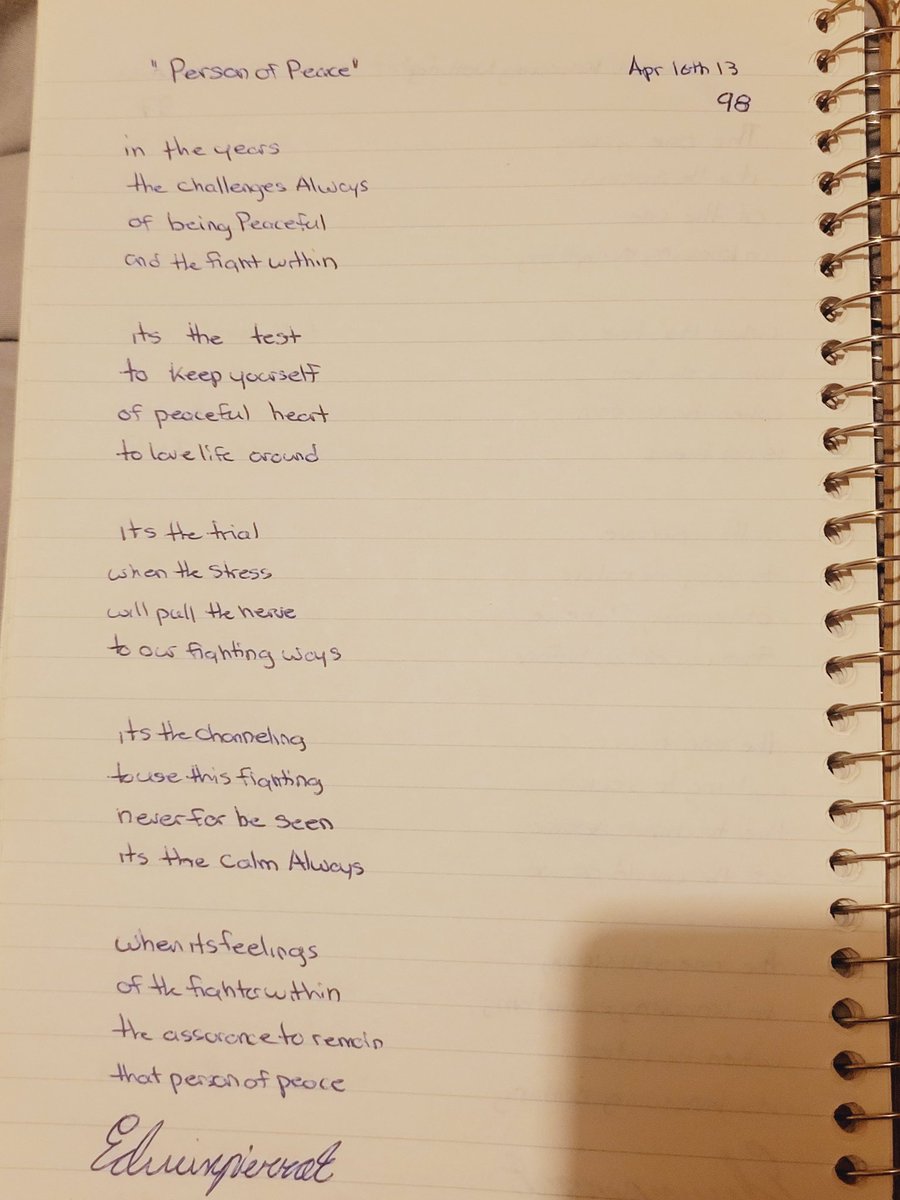 "Person of Peace" Apr 16th 13
98
in the years
the challenges Always
of being Peaceful
and the fight within
its the test
to keep yourself
of peaceful heart
to love life around
its the trial
when the stress
will pull the nerve
to our fighting ways
its the channeling
to use this fighting
never for be seen
its the calm Always
when its feelings
of the fighter within
the assurance to remain
that person of peace
Edwinpierrot